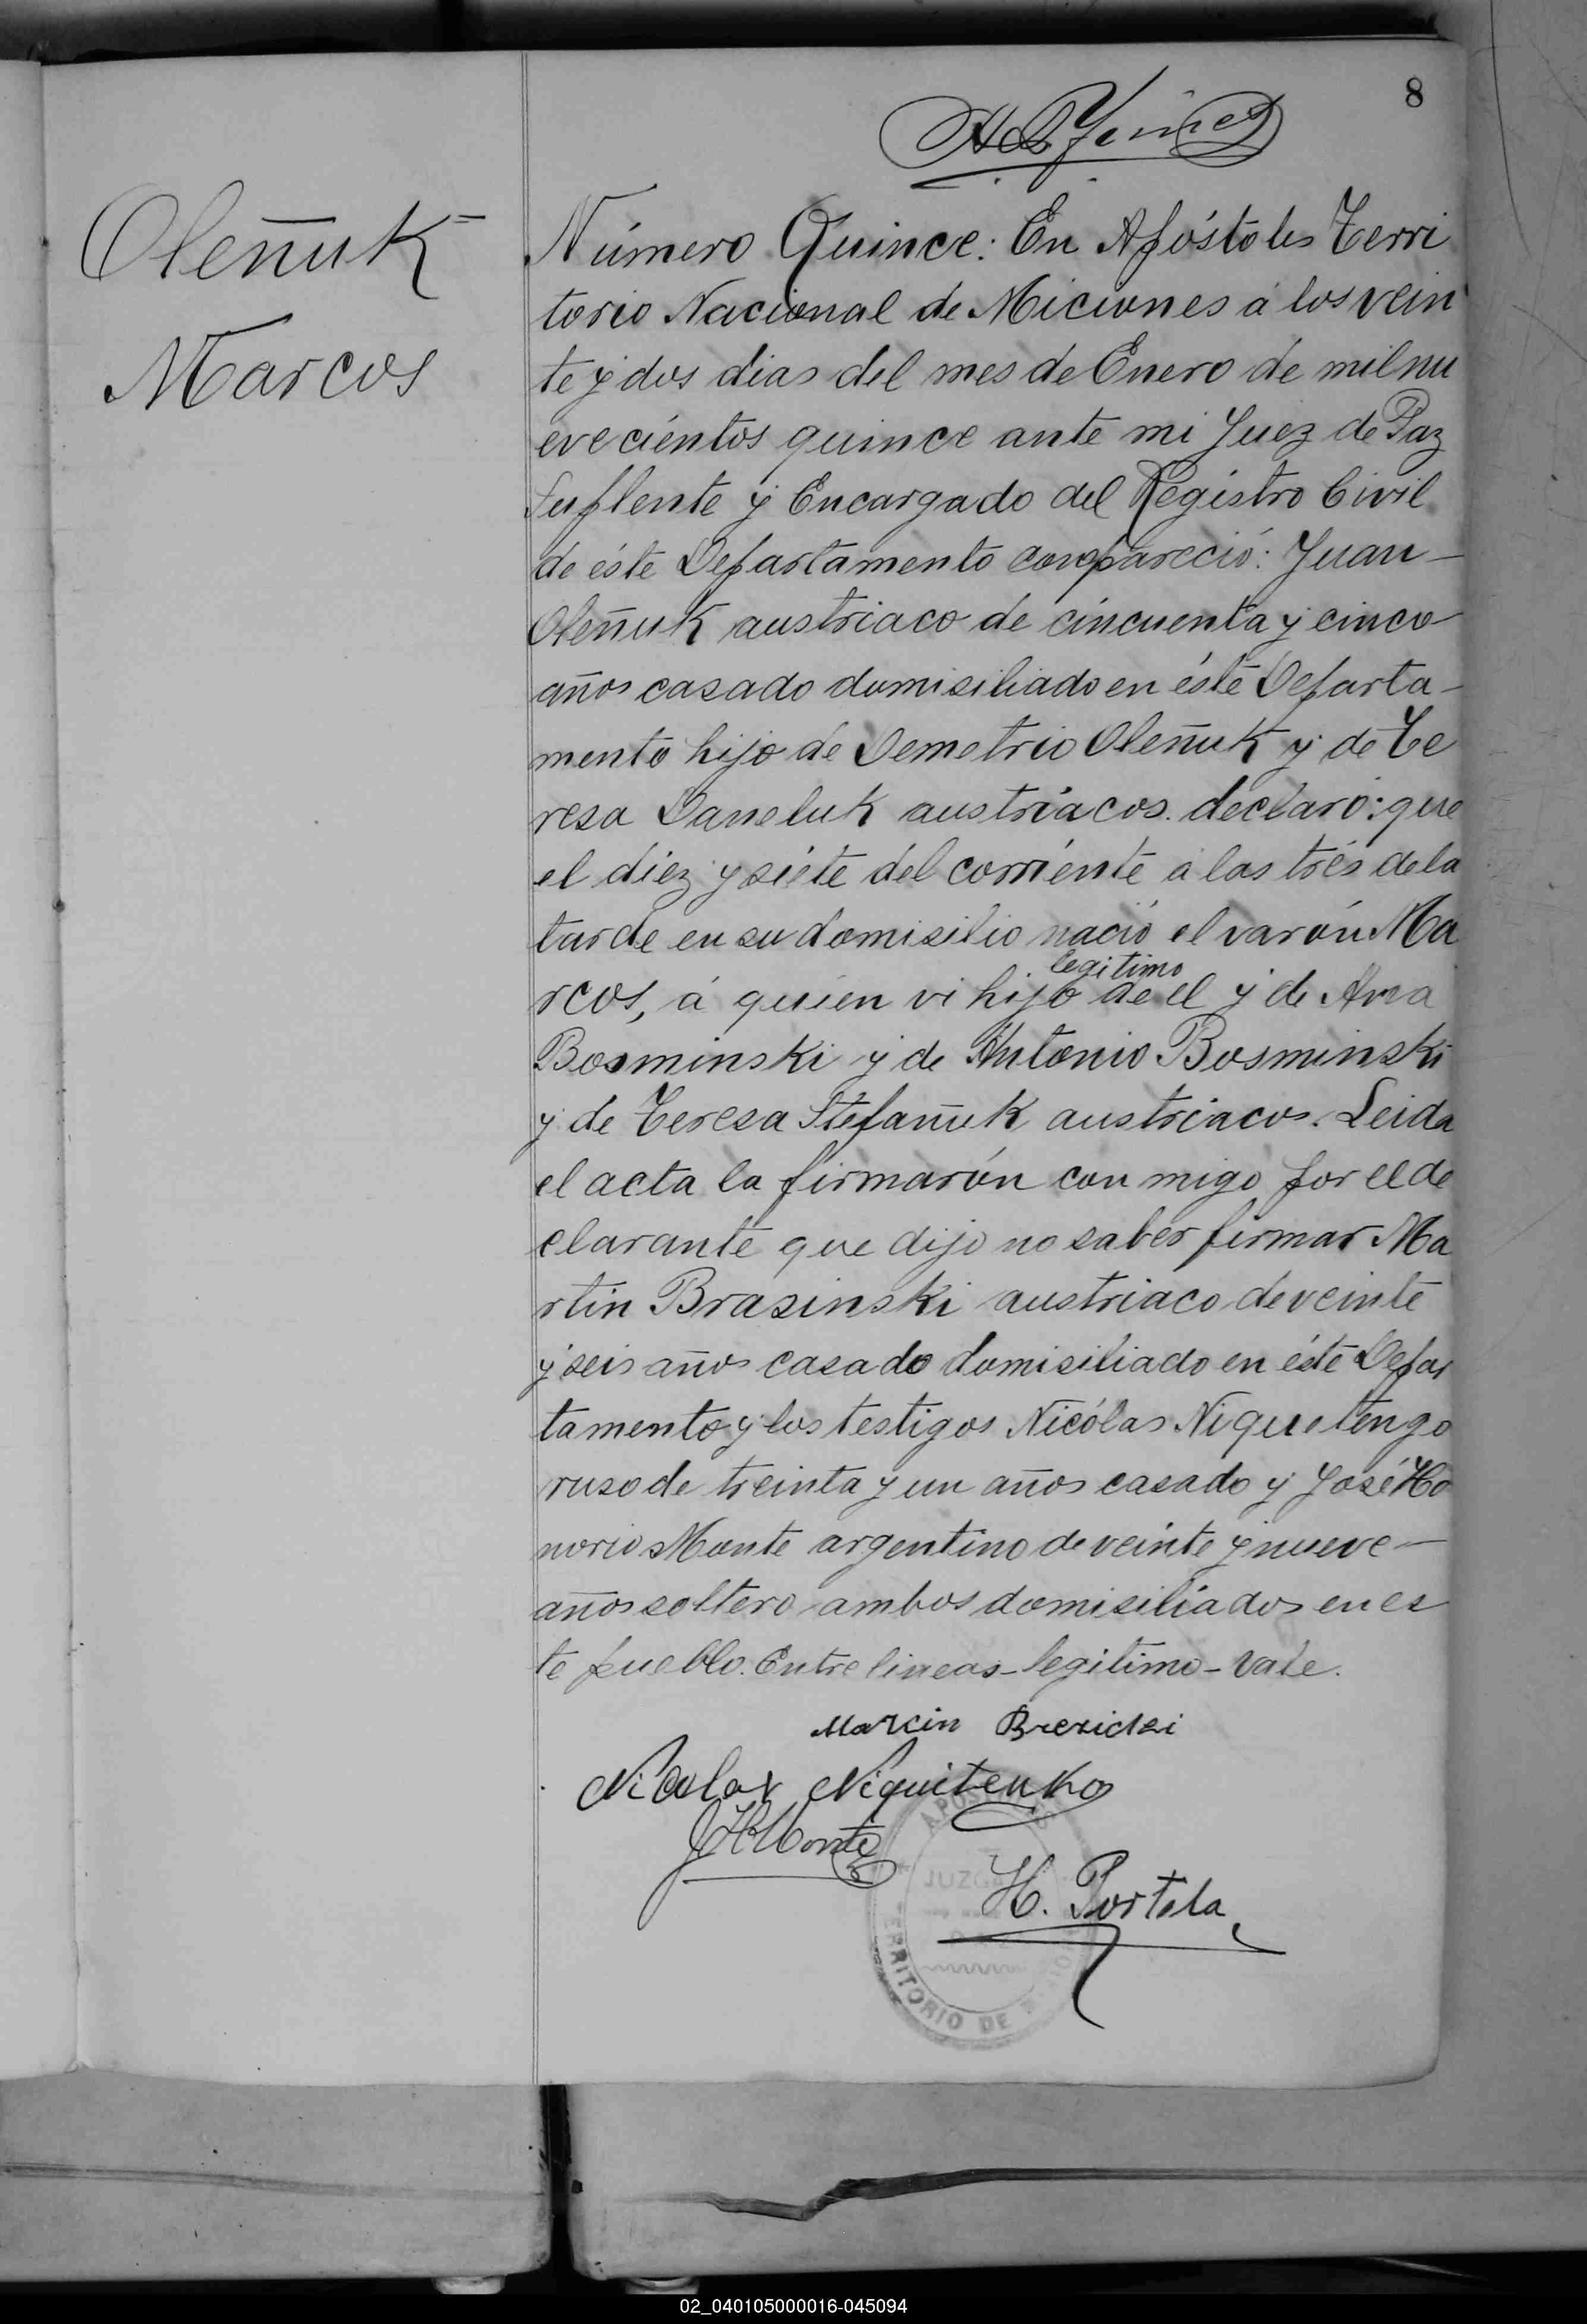 8
Oleñuk=
Marcos
Número Quince: En Apóstoles Terri
torio Nacional de Miciones á los vein
te y dos dias del mes de Enero de mil nu
eve cientos quince ante mi Juez de Paz
Suplente y Encargado del Registro Civil
de éste Departamento compareció: Juan-
Oleñuk austriaco de cincuenta y cinco
años casado domisiliado en éste Departa-
mento hijo de Demetrio Oleñuk y de Te
resa Daneluk austriacos. declaró: que
el diez y siete del corriente á las trés de la
tarde en su domisilio nació el varón Ma
legitimo
rcos, á quien vi hijo de el y de Ana
Bosminski y de Antonio Bosminski
y de Teresa Stefañuk austriacos. Leida
el acta la firmarón con migo por el de
clarante que dijo no saber firmar Ma
rtin Brasinski austriaco de veinte
y seis años casado domisiliado en éste Depar
tamento y los testigos Nicólas Niquetengo
ruso de treinta y un años casado y José Ho
norio Monte argentino de veinte y nueve-
años soltero ambos domisiliados en es
te pueblo. Entre lineas-legitimo-vale.
Marcin Brezicki
Nicolas Niquitenko
JHMonte
JUZGA
H. Portela
TERRITORIO DE
02_040105000016-045094